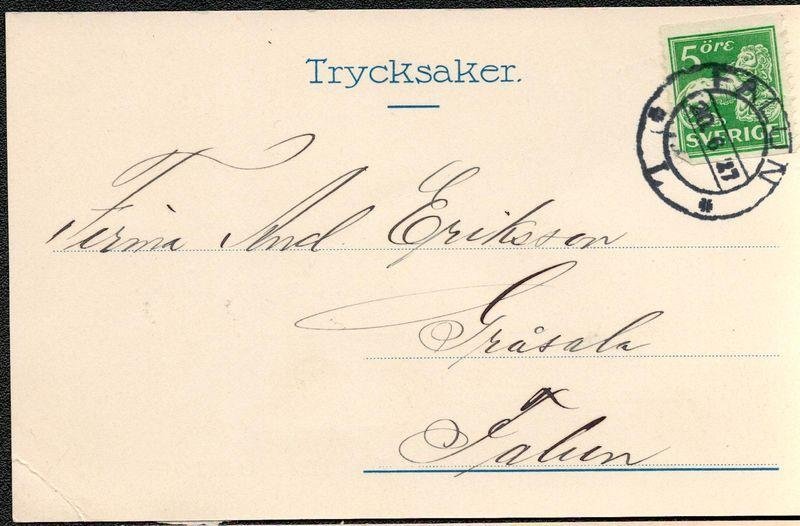 Trycksaker.
5 öre
SVERIGE
FALUN 1
20. 6 27
Firma And. Eriksson
Gråsala
Falun